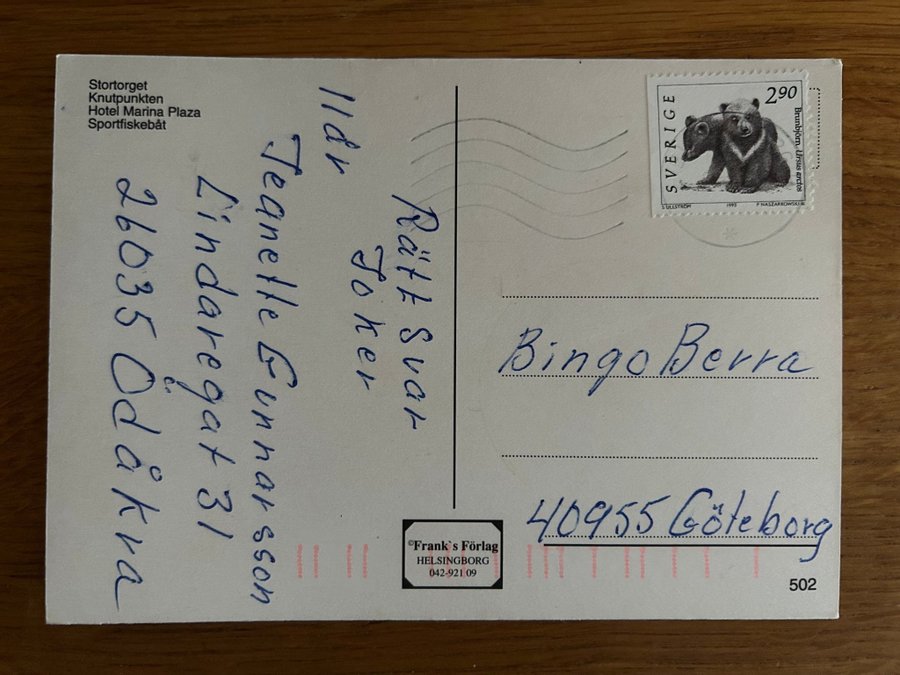 Stortorget
Knutpunkten
Hotel Marina Plaza
Sportfiskebåt
Rätt Svar
Joker
11år
Jeanette Gunnarsson
Lindaregat 31
26035 Ödåkra
SVERIGE
2 90
Brunbjörn, Ursus arctos
S ULLSTRÖM 1993 P NASZARKOWSKI
Bingo Berra
40955 Göteborg
©Frank`s Förlag
HELSINGBORG
042-921 09
502